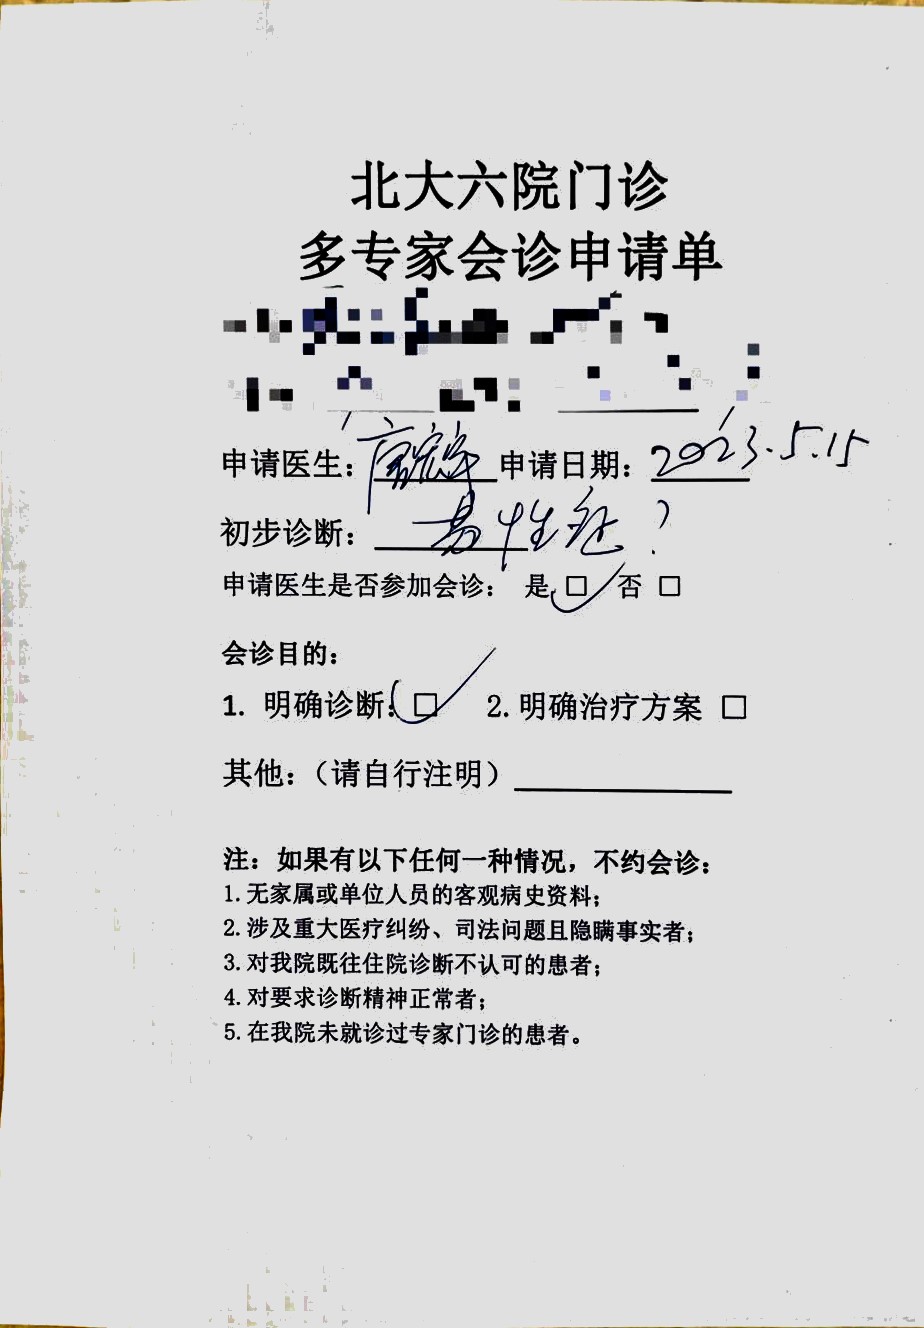 北大六院门诊
多专家会诊申请单
申请医生： 申请日期：2023.5.15
初步诊断：易性症？
申请医生是否参加会诊： 是 □ 否 □
会诊目的：
1. 明确诊断： □ 2. 明确治疗方案 □
其他：（请自行注明）
注：如果有以下任何一种情况，不约会诊：
1. 无家属或单位人员的客观病史资料；
2. 涉及重大医疗纠纷、司法问题且隐瞒事实者；
3. 对我院既往住院诊断不认可的患者；
4. 对要求诊断精神正常者；
5. 在我院未就诊过专家门诊的患者。